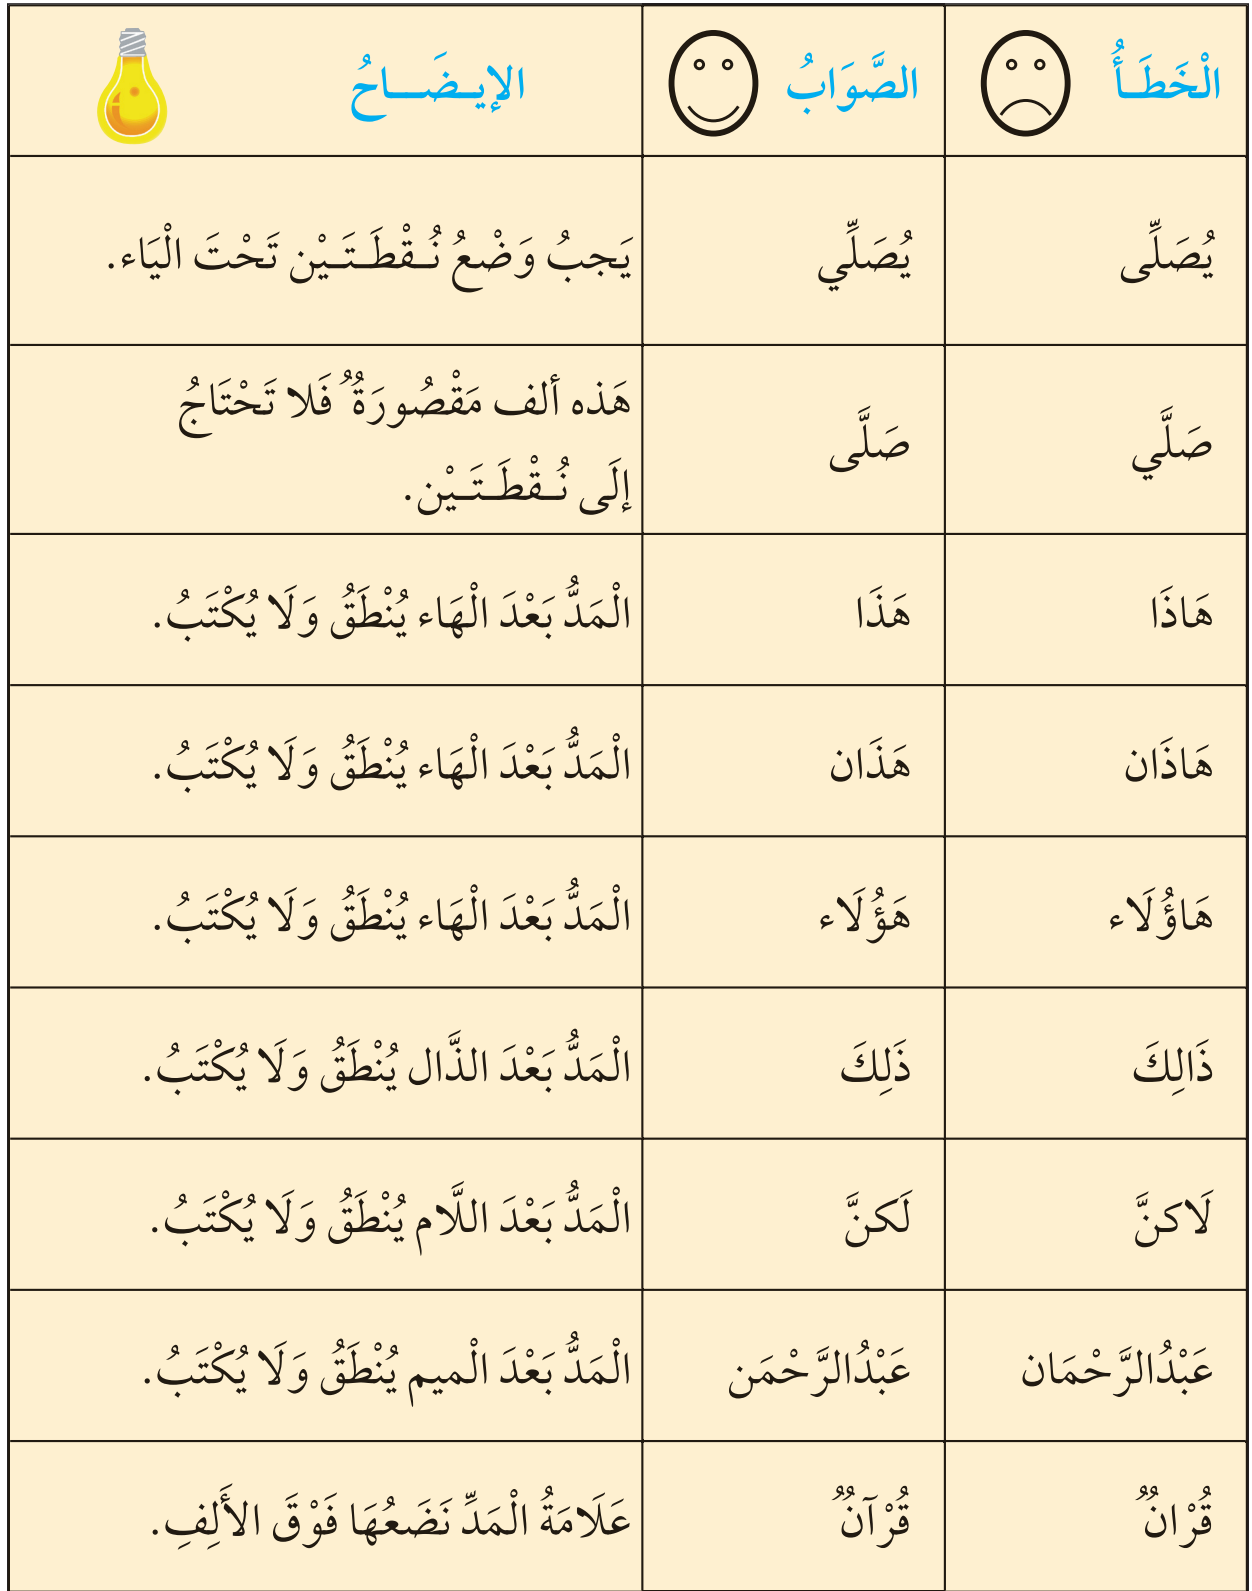 الْخَطَـأُ الصَّوَابُ الإيـضَـــاحُ
يُصَلِّى يُصَلِّي يَجبُ وَضْعُ نُـقْطَـتَـيْن تَحْتَ الْيَاء.
صَلَّي صَلَّى هَذه ألف مَقْصُورَةٌ فَلا تَحْتَاجُ
إلَى نُـقْطَـتَـيْن.
هَاذَا هَذَا الْمَدُّ بَعْدَ الْهَاء يُنْطَقُ وَلَا يُكْتَبُ.
هَاذَان هَذَان الْمَدُّ بَعْدَ الْهَاء يُنْطَقُ وَلَا يُكْتَبُ.
هَاؤُلَاء هَؤُلَاء الْمَدُّ بَعْدَ الْهَاء يُنْطَقُ وَلَا يُكْتَبُ.
ذَالِكَ ذَلِكَ الْمَدُّ بَعْدَ الذَّال يُنْطَقُ وَلَا يُكْتَبُ.
لَاكنَّ لَكنَّ الْمَدُّ بَعْدَ اللَّام يُنْطَقُ وَلَا يُكْتَبُ.
عَبْدُالرَّحْمَان عَبْدُالرَّحْمَن الْمَدُّ بَعْدَ الْميم يُنْطَقُ وَلَا يُكْتَبُ.
قُرْانٌ قُرْآنٌ عَلَامَةُ الْمَدِّ نَضَعُهَا فَوْقَ الأَلِفِ.